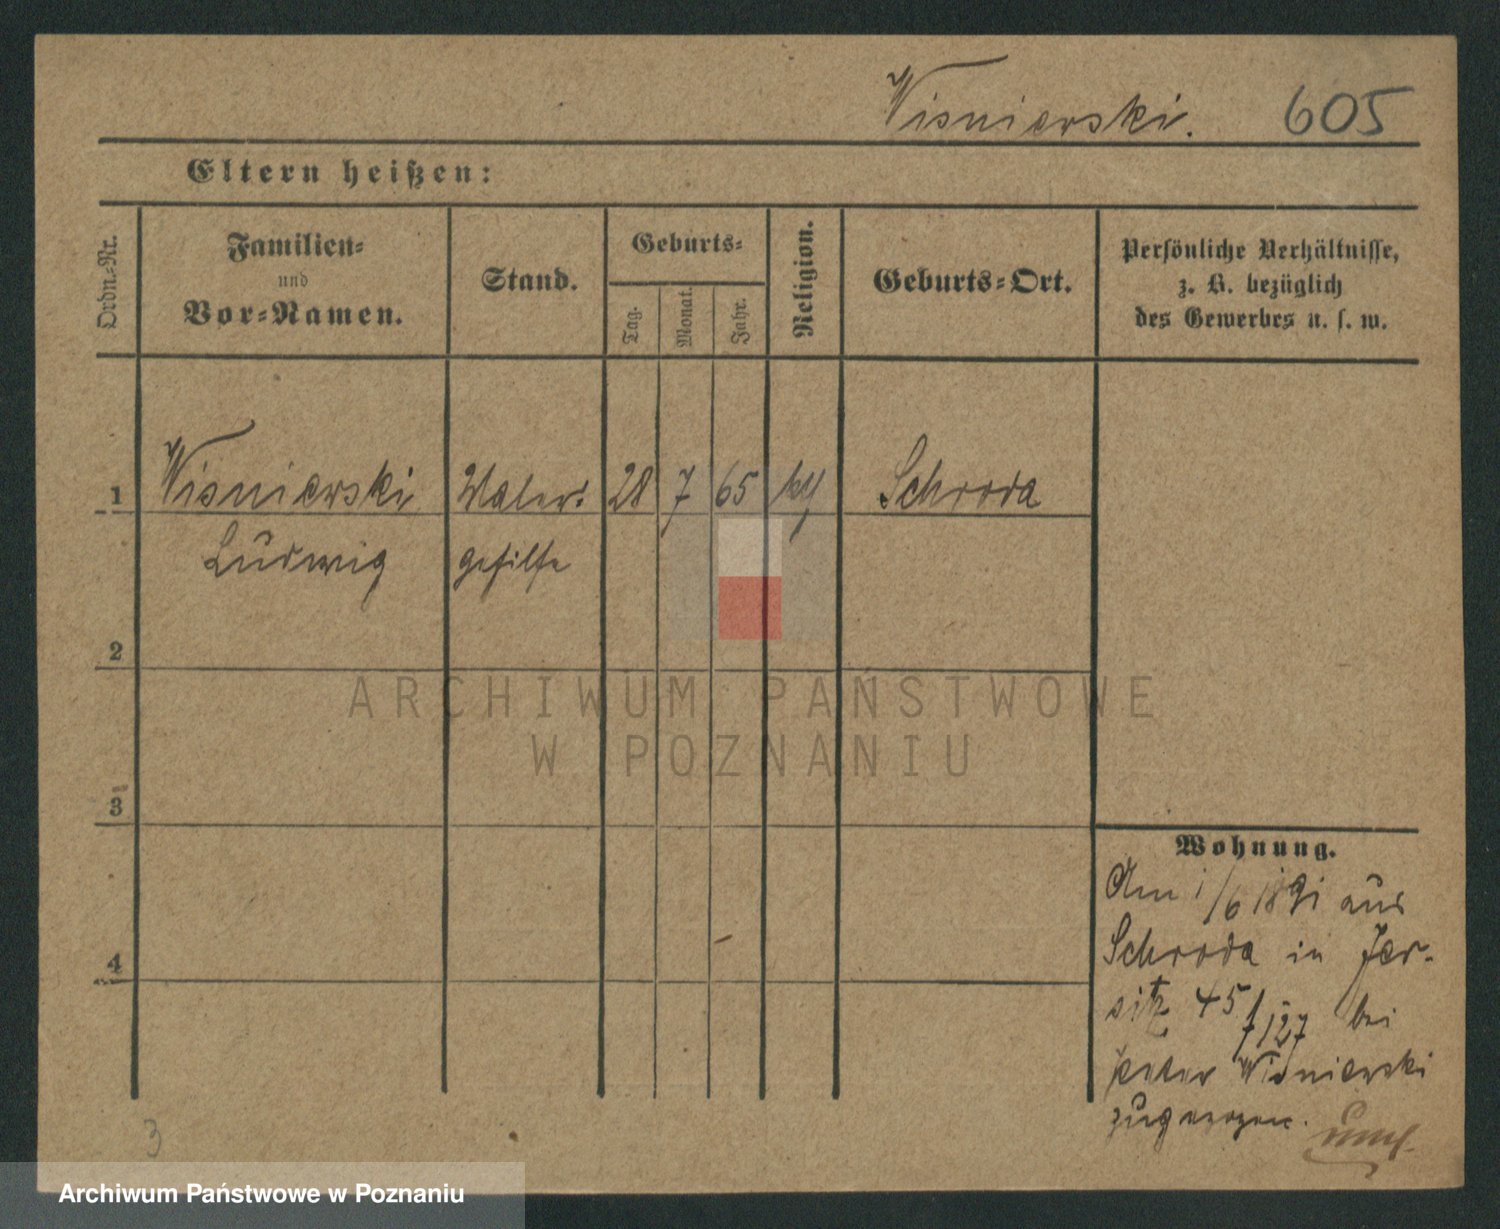 Wisniewski. 605
Eltern heißen:
Ordn.-Nr.
Familien-
und
Vor-Namen.
Stand.
Geburts-
Tag.
Monat.
Jahr.
Religion.
Geburts-Ort.
Persönliche Verhältnisse,
z. B. bezüglich
des Gewerbes u. s. w.
1 Wisniewski Maler- 28 7 65 Schroda
Ludwig gehilfe
2
3
4
ARCHIWUM PAŃSTWOWE
W POZNANIU
Wohnung.
Am 1/6 1891 aus
Schroda in Jer-
sitz 45/127 bei
Peter Wisniewski
zugezogen.
3
Archiwum Państwowe w Poznaniu